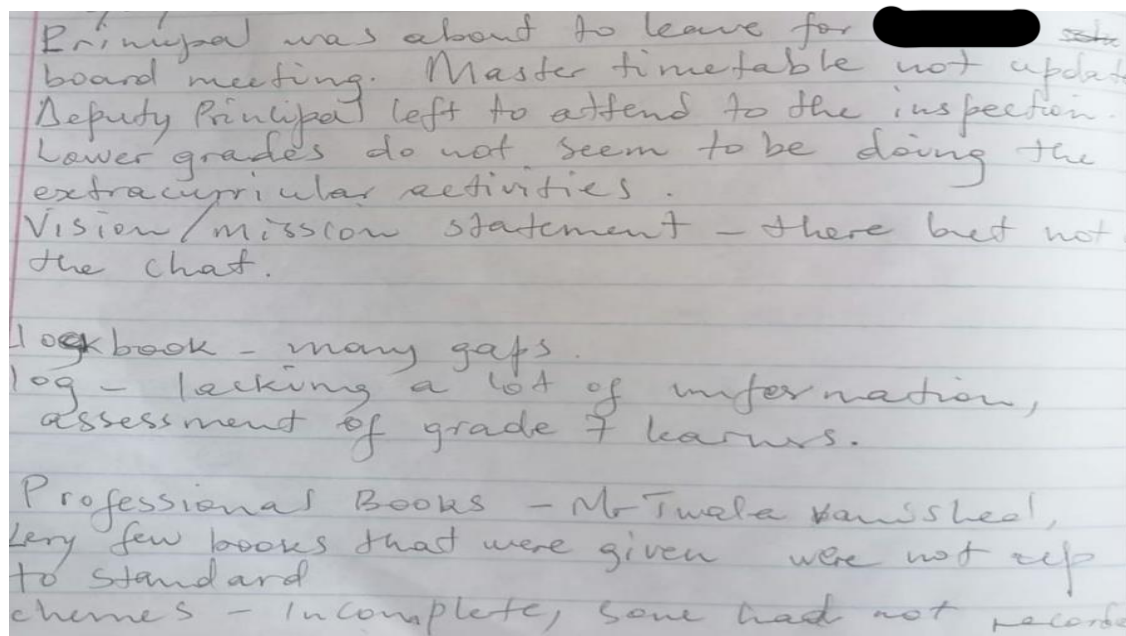 Principal was about to leave for
board meeting. Master timetable not updat
Deputy Principal left to attend to the inspection.
Lower grades do not seem to be doing the
extracurriular activities.
Vision/mission statement - there but not
the chat.
logbook - many gaps.
log - lacking a lot of information,
assessment of grade 7 learners.
Professional Books - Mr Twala vanished,
Very few books that were given were not up
to standard
chemes - Incomplete, some had not recorde